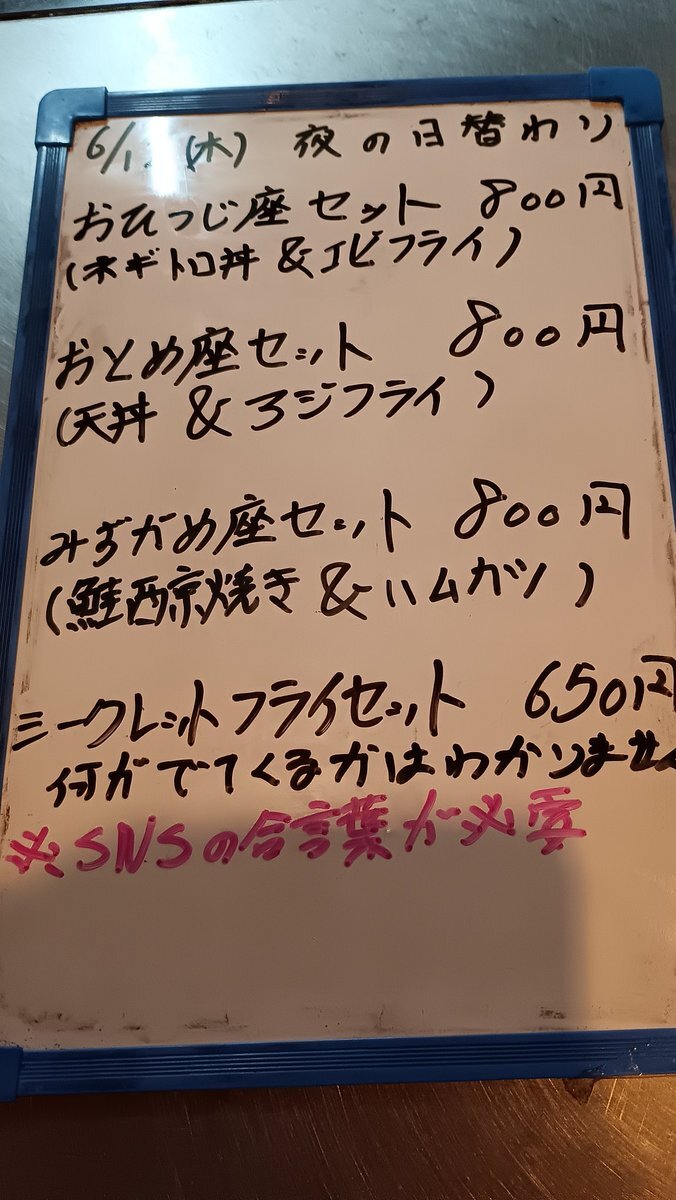 6/1 (木) 夜の日替わり
おひつじ座セット 800円
(ネギトロ丼&エビフライ)
おとめ座セット 800円
(天丼&アジフライ)
みずがめ座セット 800円
(鮭西京焼き&ハムカツ)
シークレットフライセット 650円
何がでてくるかはわかりません
※SNSの合言葉が必要